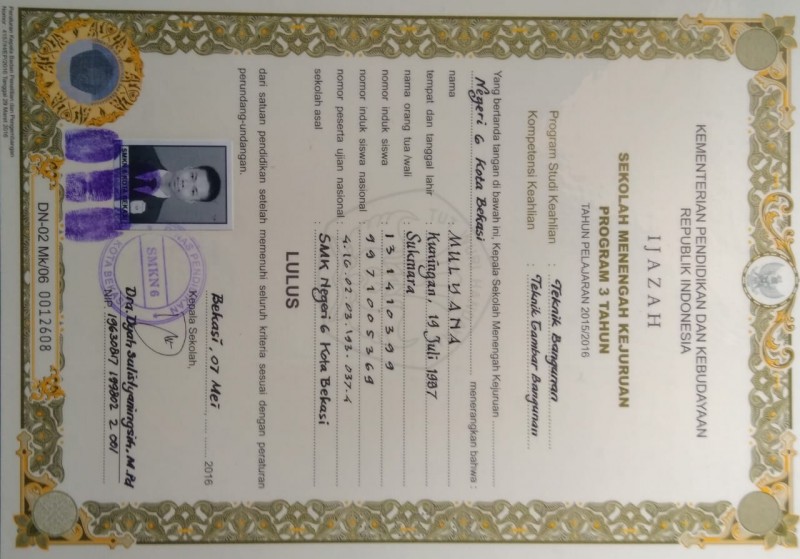 KEMENTERIAN PENDIDIKAN DAN KEBUDAYAAN
REPUBLIK INDONESIA
IJAZAH
SEKOLAH MENENGAH KEJURUAN
PROGRAM 3 TAHUN
TAHUN PELAJARAN 2015/2016
Program Studi Keahlian : Teknik Bangunan
Kompetensi Keahlian : Teknik Gambar Bangunan
Yang bertanda tangan di bawah ini, Kepala Sekolah Menengah Kejuruan
Negeri 6 Kota Bekasi menerangkan bahwa :
nama : MULYANA
tempat dan tanggal lahir : Kuningan, 19 Juli 1997
nama orang tua /wali : Sukmara
nomor induk siswa : 131410399
nomor induk siswa nasional : 9971005369
nomor peserta ujian nasional : 4.16.02.03.193.037.4
sekolah asal : SMK Negeri 6 Kota Bekasi
LULUS
dari satuan pendidikan setelah memenuhi seluruh kriteria sesuai dengan peraturan
perundang-undangan.
Bekasi, 07 Mei 2016
Kepala Sekolah,
SMKN 6
KOTA BEKASI
Dra. Dyah Sulistyaningsih, M.Pd
NIP 19630817 199802 2 001
DN-02 Mk/06 0012608
Peraturan Kepala Badan Penelitian dan Pengembangan